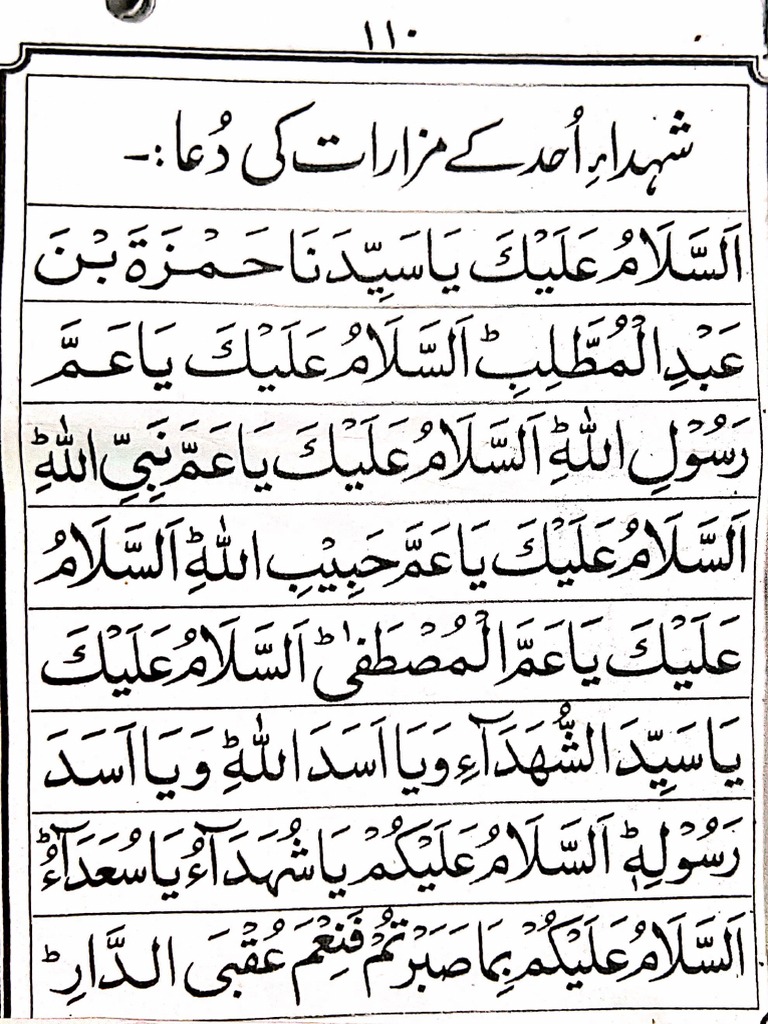 ۱۱۰
شہداءِ اُحد کے مزارات کی دُعا:۔
اَلسَّلَامُ عَلَيْكَ يَا سَيِّدَنَا حَمْزَةَ بْنَ
عَبْدِ الْمُطَّلِبِ ؕ اَلسَّلَامُ عَلَيْكَ يَا عَمَّ
رَسُوْلِ اللّٰهِ ؕ اَلسَّلَامُ عَلَيْكَ يَا عَمَّ نَبِيِّ اللّٰهِ ؕ
اَلسَّلَامُ عَلَيْكَ يَا عَمَّ حَبِيْبِ اللّٰهِ ؕ اَلسَّلَامُ
عَلَيْكَ يَا عَمَّ الْمُصْطَفٰى ؕ اَلسَّلَامُ عَلَيْكَ
يَا سَيِّدَ الشُّهَدَآءِ وَيَا اَسَدَ اللّٰهِ ؕ وَيَا اَسَدَ
رَسُوْلِهٖ ؕ اَلسَّلَامُ عَلَيْكُمْ يَا شُهَدَآءُ يَا سُعَدَآءُ ؕ
اَلسَّلَامُ عَلَيْكُمْ بِمَا صَبَرْتُمْ فَنِعْمَ عُقْبَى الدَّارِ ؕ